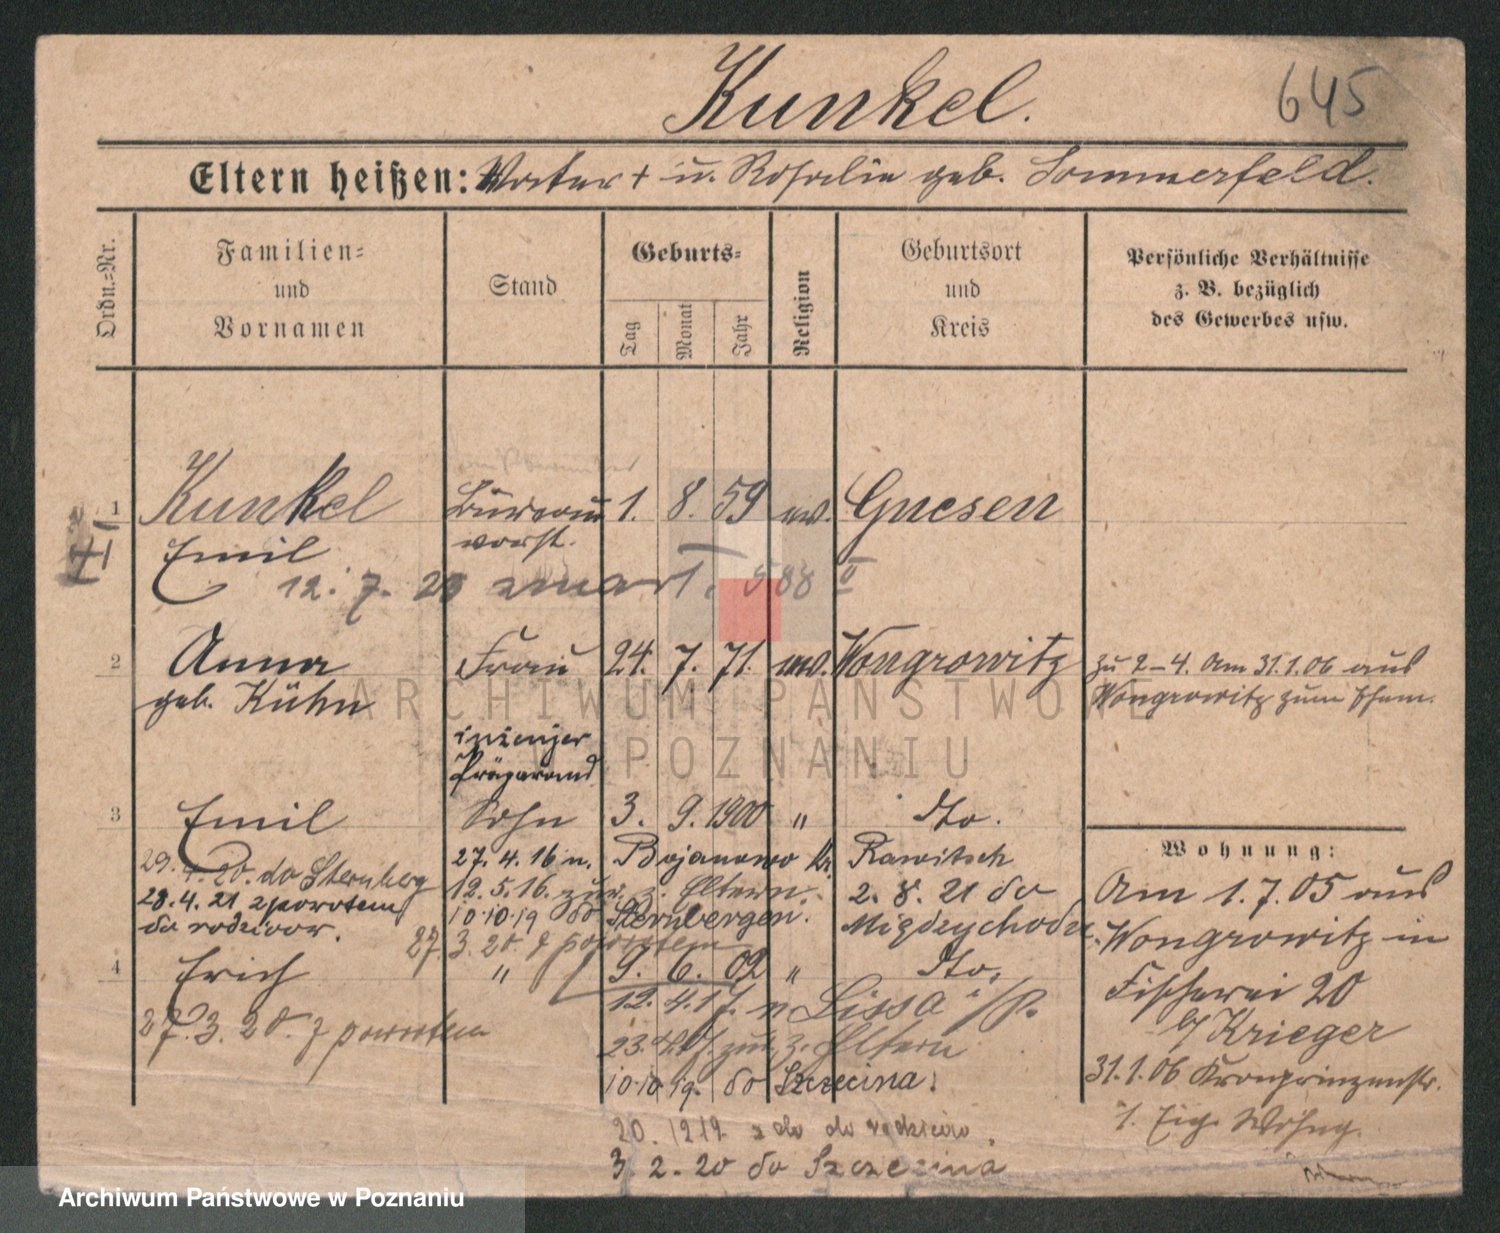 Kunkel.
645
Eltern heißen: Vater + u. Rosalie geb. Sommerfeld.
Ordn.-Nr.
Familien-
und
Vornamen
Stand
Geburts-
Tag
Monat
Jahr
Religion
Geburtsort
und
Kreis
Persönliche Verhältnisse
z. B. bezüglich
des Gewerbes usw.
1 Kunkel Bureau 1. 8. 59 ev. Gnesen
Emil vorst.
12. 7. 23 zmarł. 588 II
2 Anna Frau 24. 7. 71. ev. Wongrowitz zu 2-4. Am 31.1.06 aus
geb. Kühn Wongrowitz zum Ehem.
inżenjer
Präparand
3 Emil Sohn 3. 9. 1900 " dto.
Wohnung:
29. 20. do Sternberg 27. 4. 16 n. Bojanowo Kr. Rawitsch
28.4.21 z powrotem 12.5.16. zur. z. Eltern. 2. 8. 21 do
do rodziców. 10.10.19 do Sternbergen. Międzychodu
27. 3. 20. z powrotem
Am 1.7.05 aus
Wongrowitz in
Fischerei 20
b/ Krieger
31.1.06 Kronprinzenstr.
1. Eig. Wohng.
4 Erich " 9. 6. 02 " dto.
27. 3. 20. z powrotem 12. 4. 17. n Lissa i/P.
zur. z. Eltern
10.10.19. do Szczecina.
20. 12 19. z do rodziców.
3. 2. 20 do Szczecina
ARCHIWUM PAŃSTWOWE
W POZNANIU
Archiwum Państwowe w Poznaniu